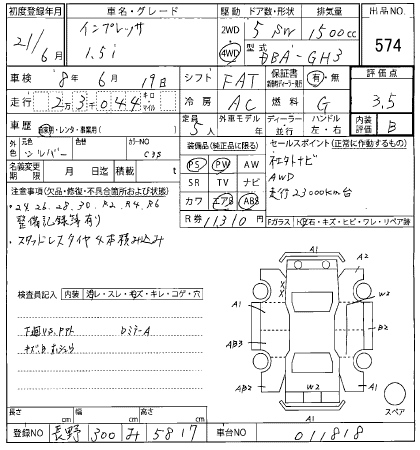 初度登録年月
車名・グレード
駆動
ドア数・形状
排気量
出品NO.
21/6月
インプレッサ
1.5i
2WD
4WD
5 SW
1500cc
型式
DBA-GH3
574
車検
8年 6月 19日
シフト
FAT
保証書
有・無
評価点
走行
23044
キロ
マイル
冷房
AC
燃料
G
3.5
車歴
自家用・レンタ・事業用( )
定員
5人
外車モデル
年
ディーラー
並行
ハンドル
左・右
内装
評価
B
外色
元色
シルバー
カラーNO
C35
装備品(純正品に限る)
セールスポイント(正常に動作するもの)
名義変更
期限
月 日迄
月日迄
PS PW AW
SR TV ナビ
カワ エアB ABS
社外ナビ
AWD
走行23000km台
注意事項(欠品・修復・不具合箇所および状態)
・24.26.28.30.R2.R4.R6
整備記録簿有り
・スタッドレスタイヤ4本積み込み
R券
11310円
Fガラス
飛石・キズ・ヒビ・ワレ・リペア跡
検査員記入
内装
汚レ・スレ・毛ズ・キレ・コゲ・穴
下廻りサビ
DミラーA
A1
A2
A1
W3
B2
AB3
A1
AB2
W2
A1
A1
スペア
長さ
cm
幅
cm
高さ
cm
登録NO
長野 300 み 5817
車台NO
011818